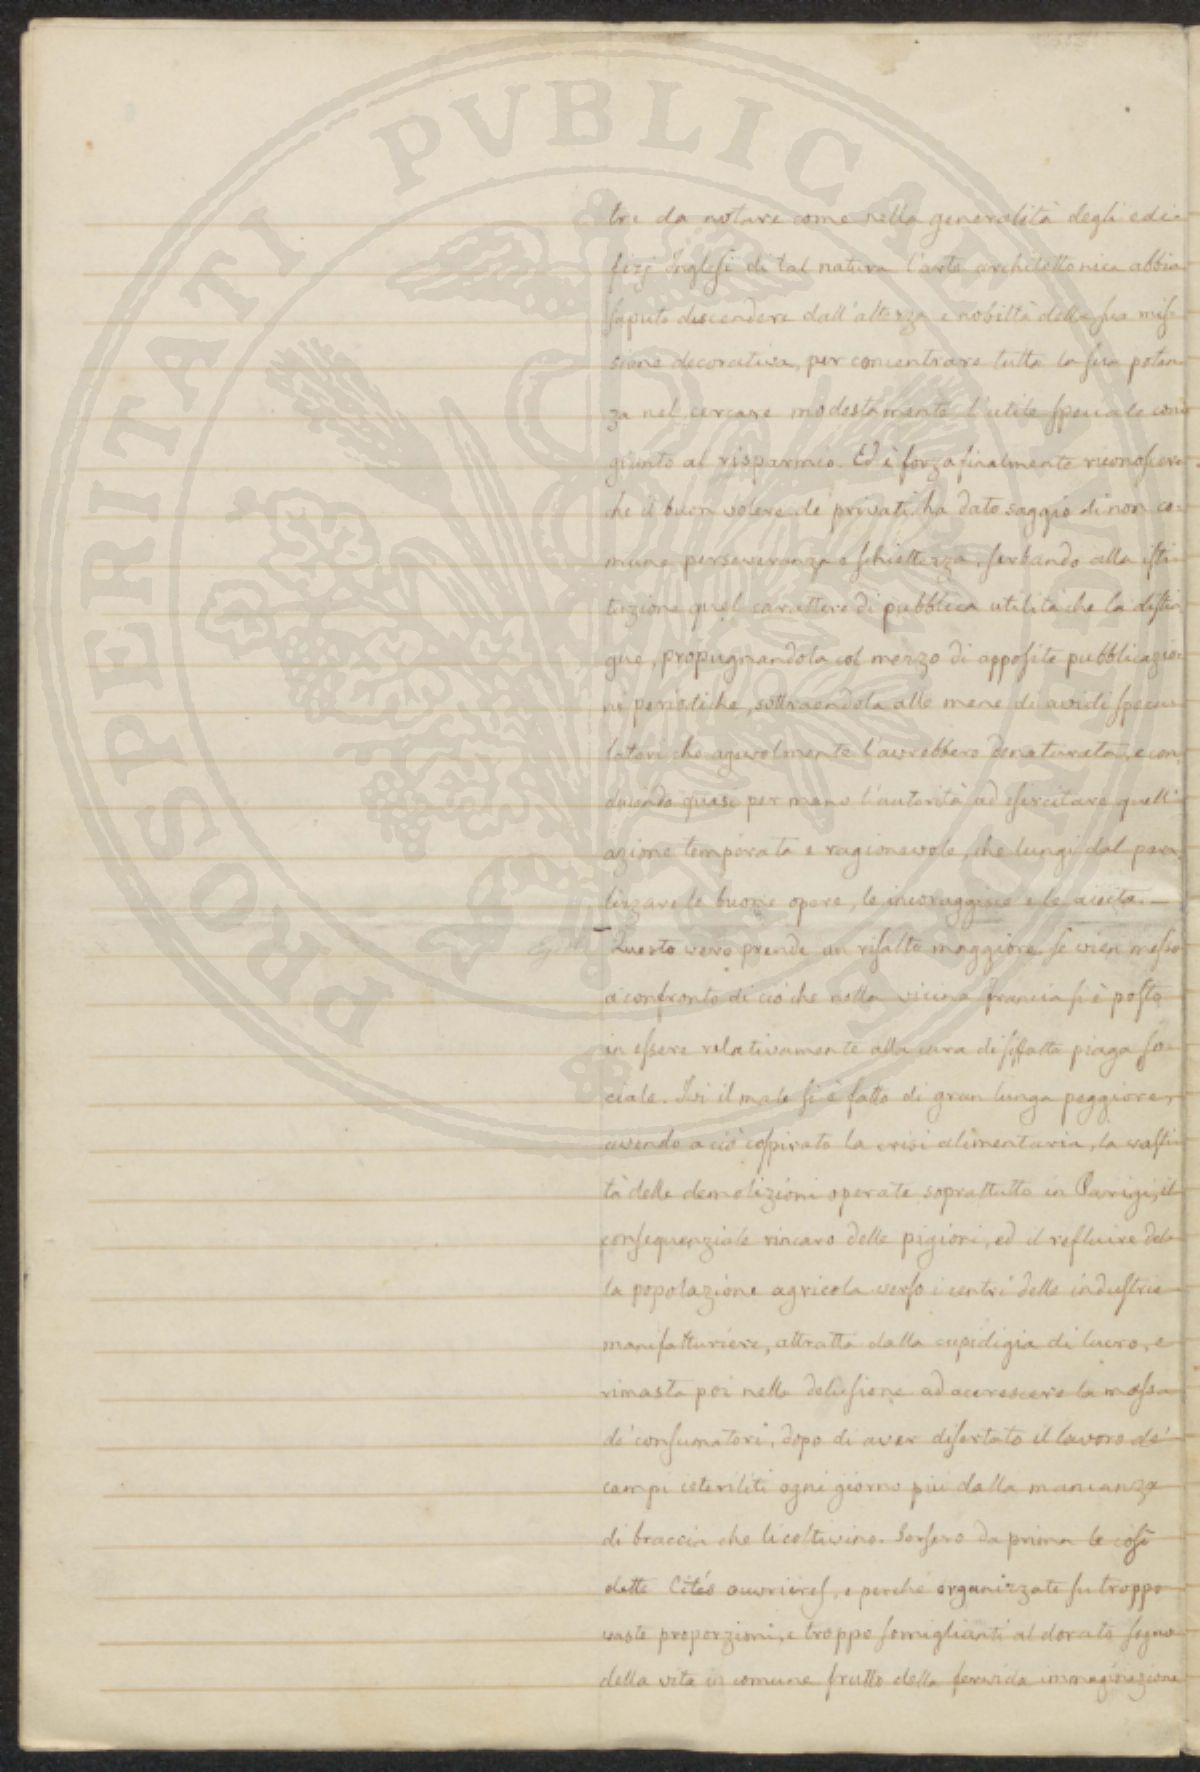 tre da notare come nella generalità degli edi-
fizj Inglesi di tal natura l'arte architettonica abbia
saputo discendere dall'altezza e nobiltà della sua mis-
sione decorativa, per concentrare tutta la sua poten-
za nel cercare modestamente l'utile speciale con-
giunto al risparmio. Ed è forza finalmente riconoscere
che il buon volere de' privati ha dato saggio di non co-
mune perseveranza e schiettezza, serbando alla isti-
tuzione quel carattere di pubblica utilità che la distin-
gue, propugnandola col mezzo di apposite pubblicazio-
ni periodiche, sottraendola alle mene di avidi specu-
latori che agevolmente l'avrebbero denaturata, e con-
ducendo quasi per mano l'autorità ad esercitare quell'
azione temperata e ragionevole, che lungi dal para-
lizzare le buone opere, le incoraggisce e le aiuta.—
Questo vero prende un risalto maggiore se vien messo
a confronto di ciò che nella vicina francia si è posto
in essere relativamente alla cura di siffatta piaga so-
ciale. Ivi il male si è fatto di gran lunga peggiore,
avendo a ciò cospirato la crisi alimentaria, la vasti-
tà delle demolizioni operate soprattutto in Parigi, il
consequenziale rincaro delle pigioni, ed il refluire del-
la popolazione agricola verso i centri delle industrie
manifatturiere, attratta dalla cupidigia di lucro, e
rimasta poi nella delusione ad accrescere la massa
de' consumatori, dopo di aver disertato il lavoro de'
campi isteriliti ogni giorno più dalla mancanza
di braccia che li coltivino. Sorsero da prima le così
dette Cités ouvrières, e perché organizzate su troppo
vaste proporzioni, e troppo somiglianti al dorato sogno
della vita in comune frutto della fervida immaginazione
PROSPERITATI PVBLICAE AVGENDAE